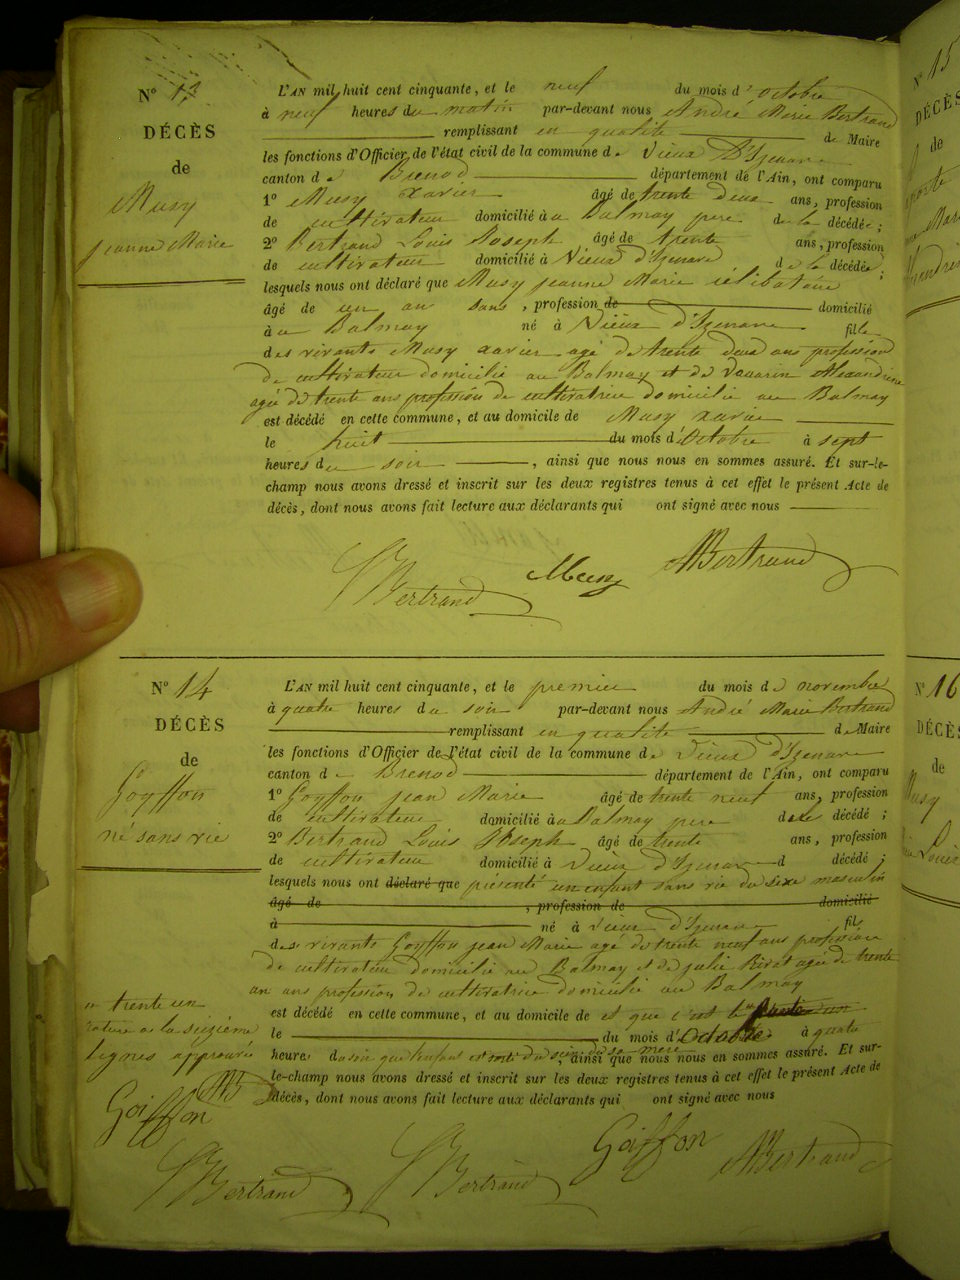 N° 13
DÉCÈS
de
Musy
jeanne Marie
L'AN mil huit cent cinquante, et le neuf du mois d'octobre
à neuf heures du matin par-devant nous André Marie Bertrand
remplissant en qualité de Maire
les fonctions d'Officier de l'état civil de la commune de Vieux D'Izenave
canton de Brenod département de l'Ain, ont comparu
1° Musy xavier âgé de trente deux ans, profession
de cultivateur domicilié à au Balmay pere de la décédée ;
2° Bertrand Louis Joseph âgé de trente ans, profession
de cultivateur domicilié à Vieux d'Izenave de la décédée ;
lesquels nous ont déclaré que Musy jeanne Marie célibataire
âgé de un an sans , profession de domicilié
à au Balmay né à Vieux d'Izenave fille
des vivants Musy xavier agé de trente deux ans profession
de cultivateur domicilié au Balmay et de Alexandrine
agée de trente ans profession de cultivatrice domicilié au Balmay
est décédé en cette commune, et au domicile de Musy xavier
le huit du mois d'Octobre à sept
heures du soir , ainsi que nous nous en sommes assuré. Et sur-le-
champ nous avons dressé et inscrit sur les deux registres tenus à cet effet le présent Acte de
décès, dont nous avons fait lecture aux déclarants qui ont signé avec nous
Bertrand Musy Bertrand
N° 14
DÉCÈS
de
Goyffon
né sans vie
L'AN mil huit cent cinquante, et le premier du mois de novembre
à quatre heures du soir par-devant nous André Marie Bertrand
remplissant en qualité de Maire
les fonctions d'Officier de l'état civil de la commune de Vieux d'Izenave
canton de Brenod département de l'Ain, ont comparu
1° Goyffon jean Marie âgé de trente neuf ans, profession
de cultivateur domicilié à au Balmay pere du décédé ;
2° Bertrand Louis Joseph âgé de trente ans, profession
de cultivateur domicilié à Vieux d'Izenave d décédé ;
lesquels nous ont déclaré que présenté un enfant sans vie du sexe masculin
âgé de , profession de domicilié
à né à Vieux d'Izenave fils
des vivants Goyffon jean Marie agé de trente neuf ans profession
de cultivateur domicilié au Balmay et de julie Rivat agée de trente
un ans profession de cultivatrice domicilié au Balmay
est décédé en cette commune, et au domicile de et que c'est le
le du mois d'Octobre à quatre
heures du soir que l'enfant est sorti du sein de sa mere , ainsi que nous nous en sommes assuré. Et sur-
le-champ nous avons dressé et inscrit sur les deux registres tenus à cet effet le présent Acte de
décès, dont nous avons fait lecture aux déclarants qui ont signé avec nous
trente un
rature a la seizième
lignes approuvée
Goiffon
Bertrand Bertrand Goiffon Bertrand
N° 15
DÉCÈS
de
N° 16
DÉCÈS
de
Musy